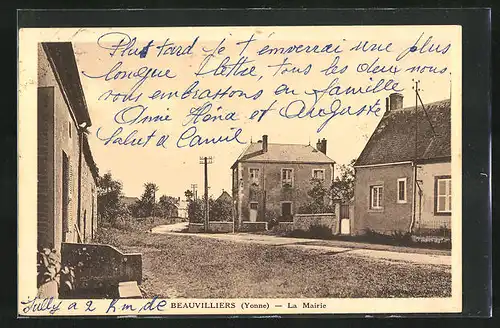 Plus tard je t'enverrai une plus
longue lettre, tous les deux nous
vous embrassons en famille
Anne Héna et Auguste
Salut à Camil
Sully à 2 Km de BEAUVILLIERS (Yonne) — La Mairie